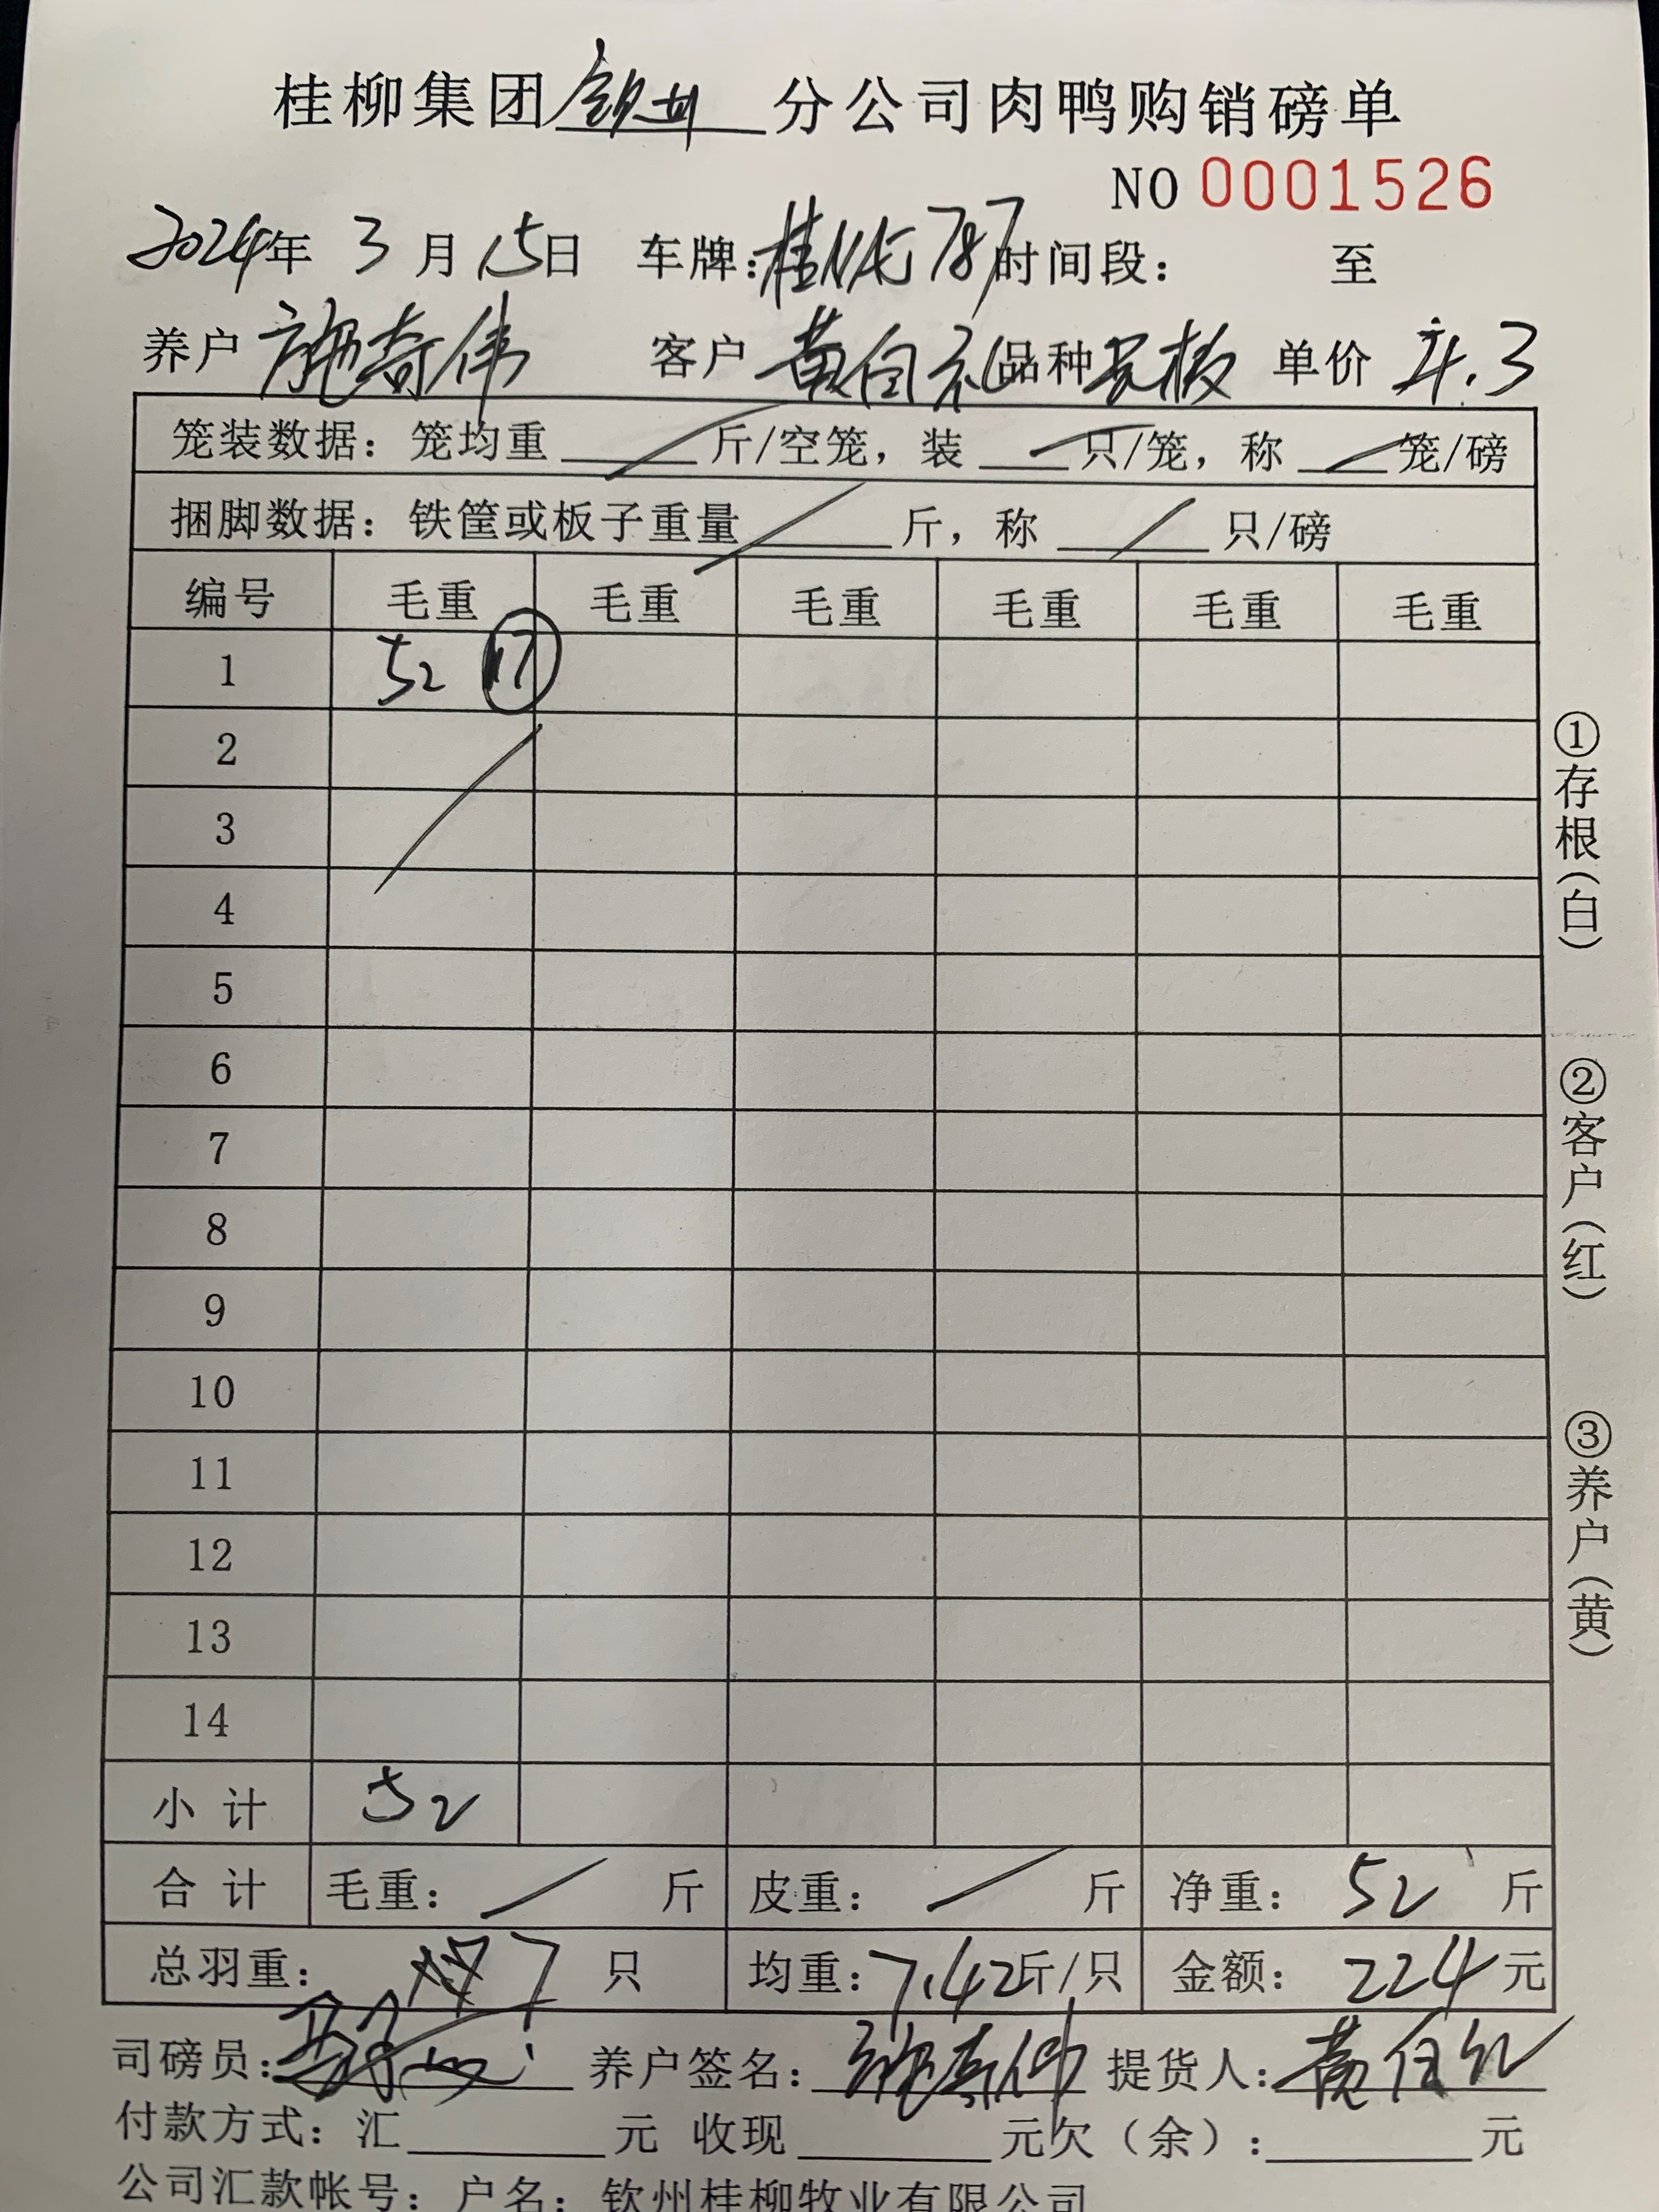 桂柳集团钦州分公司肉鸭购销磅单
NO 0001526
2024年 3 月 15日 车牌:桂 787 时间段: 至
养户 施奇伟 客户 黄 品种 板 单价 4.3
笼装数据: 笼均重 / 斤/空笼, 装 / 只/笼, 称 / 笼/磅
捆脚数据: 铁筐或板子重量 / 斤, 称 / 只/磅
编号 毛重 毛重 毛重 毛重 毛重 毛重
1 52 7
2
3
4
5
6
7
8
9
10
11
12
13
14
小 计 52
合 计 毛重: / 斤 皮重: / 斤 净重: 52 斤
总羽重: 7 只 均重: 7.42斤/只 金额: 224元
司磅员: 养户签名: 施奇伟 提货人: 黄
付款方式: 汇 元 收现 元欠(余): 元
公司汇款帐号: 户名: 钦州桂柳牧业有限公司
①存根(白)
②客户(红)
③养户(黄)